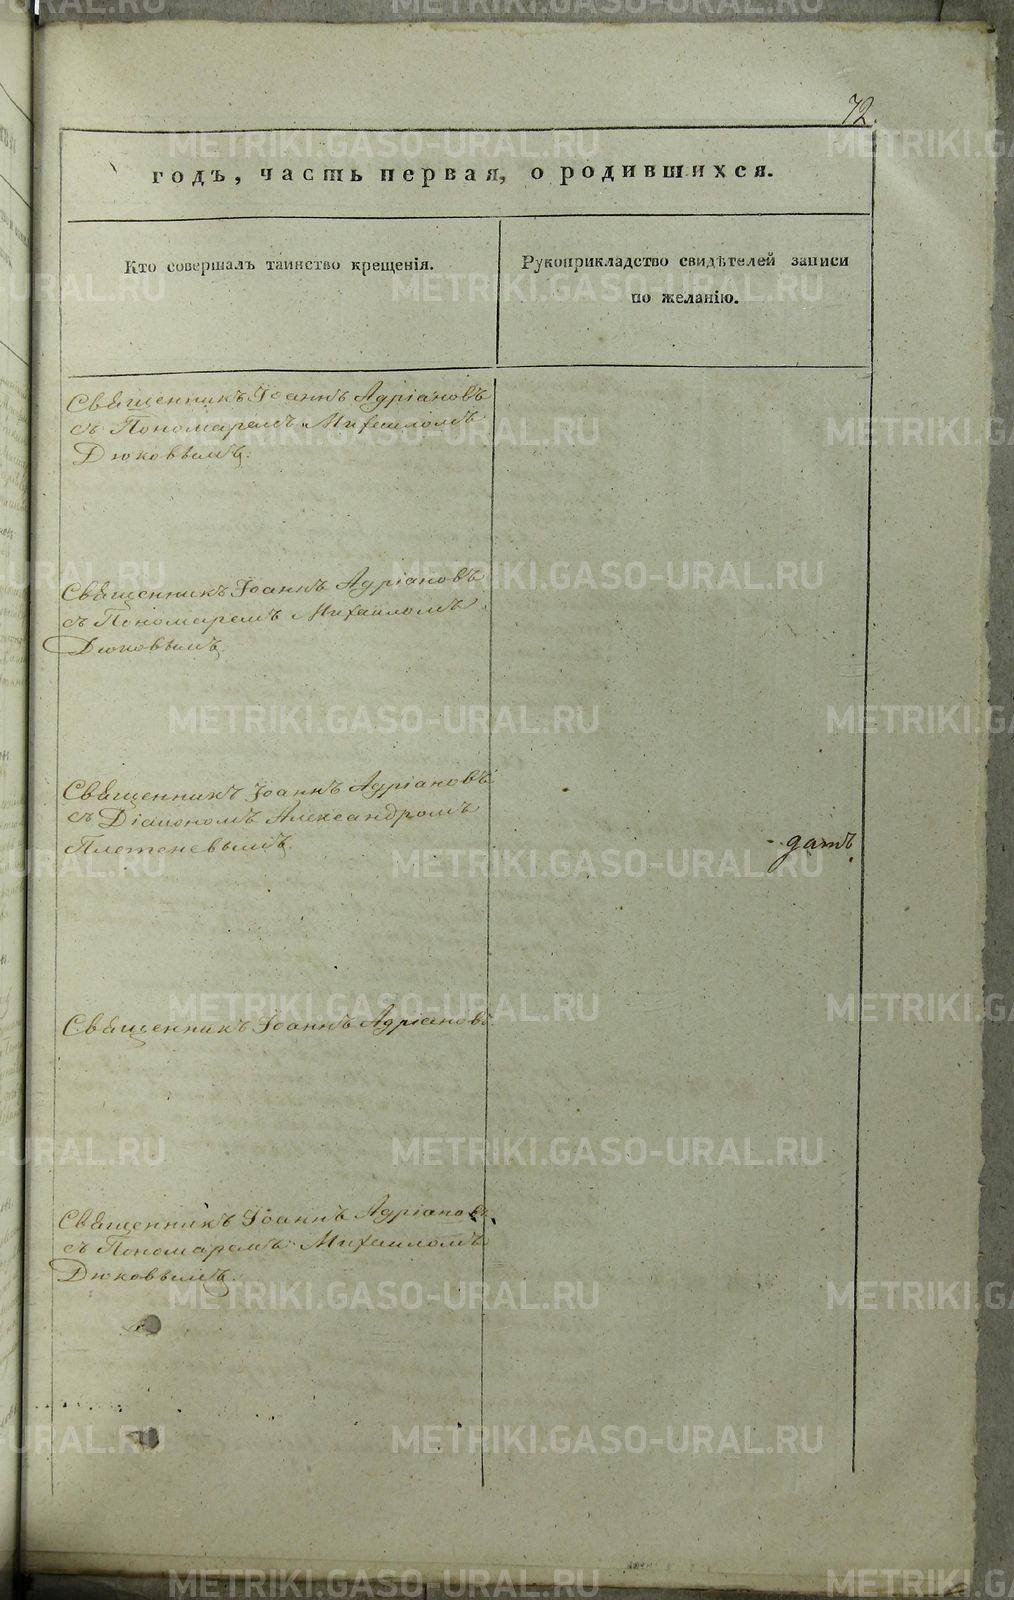 72.
годъ, часть первая, о родившихся.
Кто совершалъ таинство крещенія.
Рукоприкладство свидѣтелей записи
по желанію.
Священникъ Іоаннъ Адріановъ
съ Пономаремъ Михаиломъ
Дюковымъ.
Священникъ Іоаннъ Адріановъ
съ Пономаремъ Михаиломъ
Дюковымъ.
Священникъ Іоаннъ Адріановъ
съ Діакономъ Александромъ
Плотеневымъ.
- датъ
Священникъ Іоаннъ Адріановъ
Священникъ Іоаннъ Адріановъ
съ Пономаремъ Михаиломъ
Дюковымъ.
METRIKI.GASO-URAL.RU